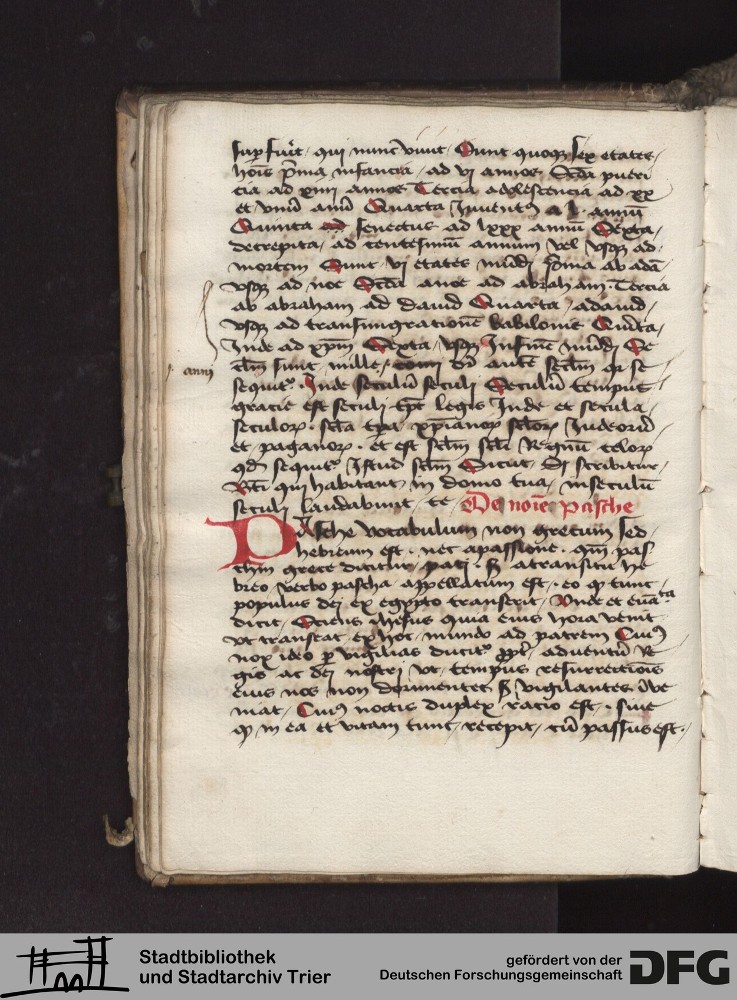 qui nunc viuut Sunt quoqȝ sex etates
hoīs prima infancia ad vi annos Scd̄a pueri
cia ad xiiii annos Tercia adolescencia ad xx
et vnū annū Quarta Iuuentꝰ a l annū
Quinta ad senectus ad lxxx annū Sexta
decrepita ad centesimū annum vel vsqȝ ad
mortem Sunt vi etates mūdi p̄ma ab adā
vsqȝ ad noe Scd̄a anoe ad abraham Tercia
ab abraham ad dauid Quarta adauid
vsqȝ ad transmigrationē babilonie Quīta
Inde ad xp̄m Sexta vsqȝ Infinē mūdi Se
anni
sunt mille
sequitꝰ Inde seculū seculi Seculū
gracie est seculi legis Inde et secula
seculorꝝ xp̄ianorꝝ Iudeorū
et paganorꝝ et est Regnū celorꝝ
qd̄ sequitꝰ Istud Dicūt scribitur
qui habitant in domo tua inseculū
seculi laudabunt te De noīe pasche
Pasche vocabulum non grecum sed
hebreum est nec apassione qm̄ pas
chin grece dicitur pati atransitu he
breo verbo pascha appellatum est eo qꝫ tunc
populus dei ex egypto transerit Vnde et euāta
dicit Sciens ihesus quia eius hora venit
vt transeat ex hoc mundo ad patrem Cuiꝰ
nox ideo ꝑ vigilias ducitꝰ aduentū Re
gis ac dei nostri vt tempus resurrectiois
eius nos non dormientes Sꝫ vigilantes Inue
niat Cuiꝰ noctis duplex racio est siue
qꝫ in ea et vitam tunc recepit cū passus est
Stadtbibliothek
und Stadtarchiv Trier
gefördert von der
Deutschen Forschungsgemeinschaft
DFG